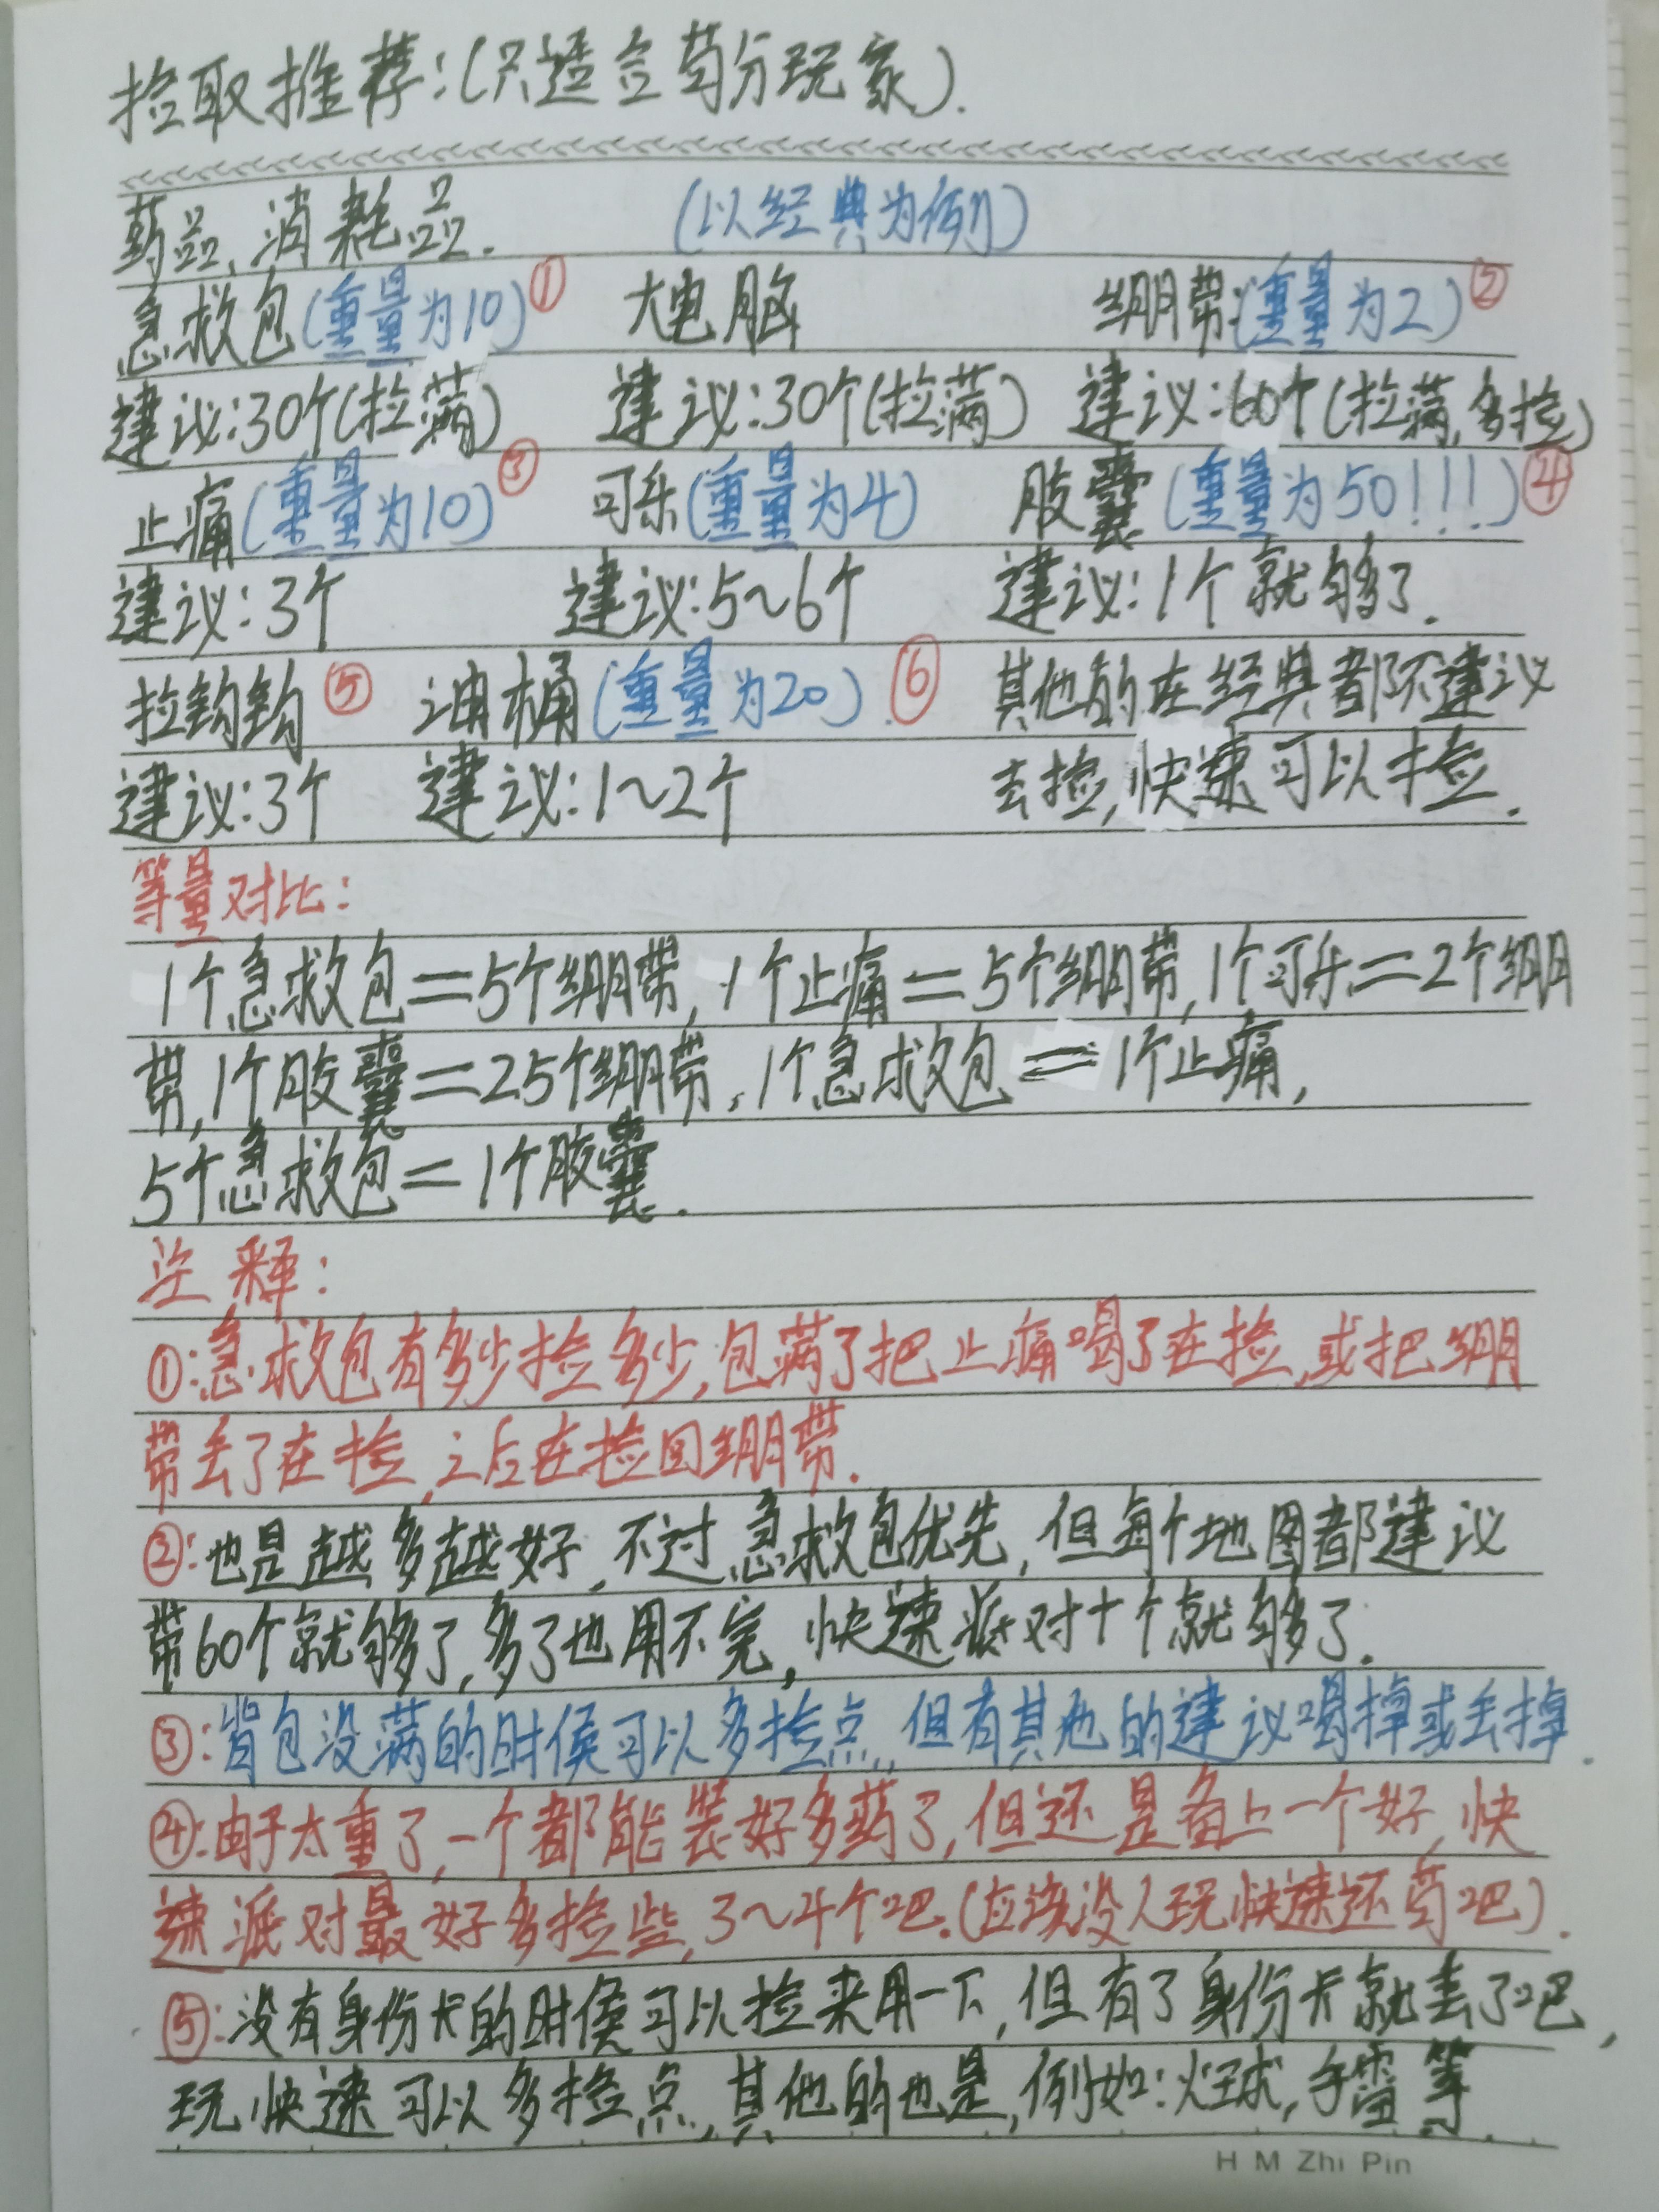 捡取推荐:(只适合苟分玩家).
药品、消耗品. (以经典为例)
急救包(重量为10)① 大电脑 绷带:(重量为2)②
建议:30个(拉满) 建议:30个(拉满) 建议:60个(拉满,多捡)
止痛(重量为10)③ 可乐(重量为4) 胶囊(重量为50!!!)④
建议:3个 建议:5~6个 建议:1个就够了.
拉钩钩⑤ 油桶(重量为20).⑥ 其他的在经典都不建议
建议:3个 建议:1~2个 去捡,快速可以捡.
等量对比:
1个急救包=5个绷带,1个止痛=5个绷带,1个可乐=2个绷
带,1个胶囊=25个绷带,1个急救包=1个止痛,
5个急救包=1个胶囊.
注释:
①:急救包有多少捡多少,包满了把止痛喝了在捡,或把绷
带丢了在捡,之后在捡回绷带.
②:也是越多越好,不过急救包优先,但每个地图都建议
带60个就够了,多了也用不完,快速派对十个就够了.
③:背包没满的时候可以多捡点,但有其他的建议喝掉或丢掉.
④:由于太重了,一个都能装好多药了,但还是备上一个好,快
速派对最好多捡些,3~4个吧.(应该没人玩快速还苟吧).
⑤:没有身份卡的时候可以捡来用一下,但有了身份卡就丢了吧,
玩快速可以多捡点,其他的也是,例如:火球,手雷等.
H M Zhi Pin